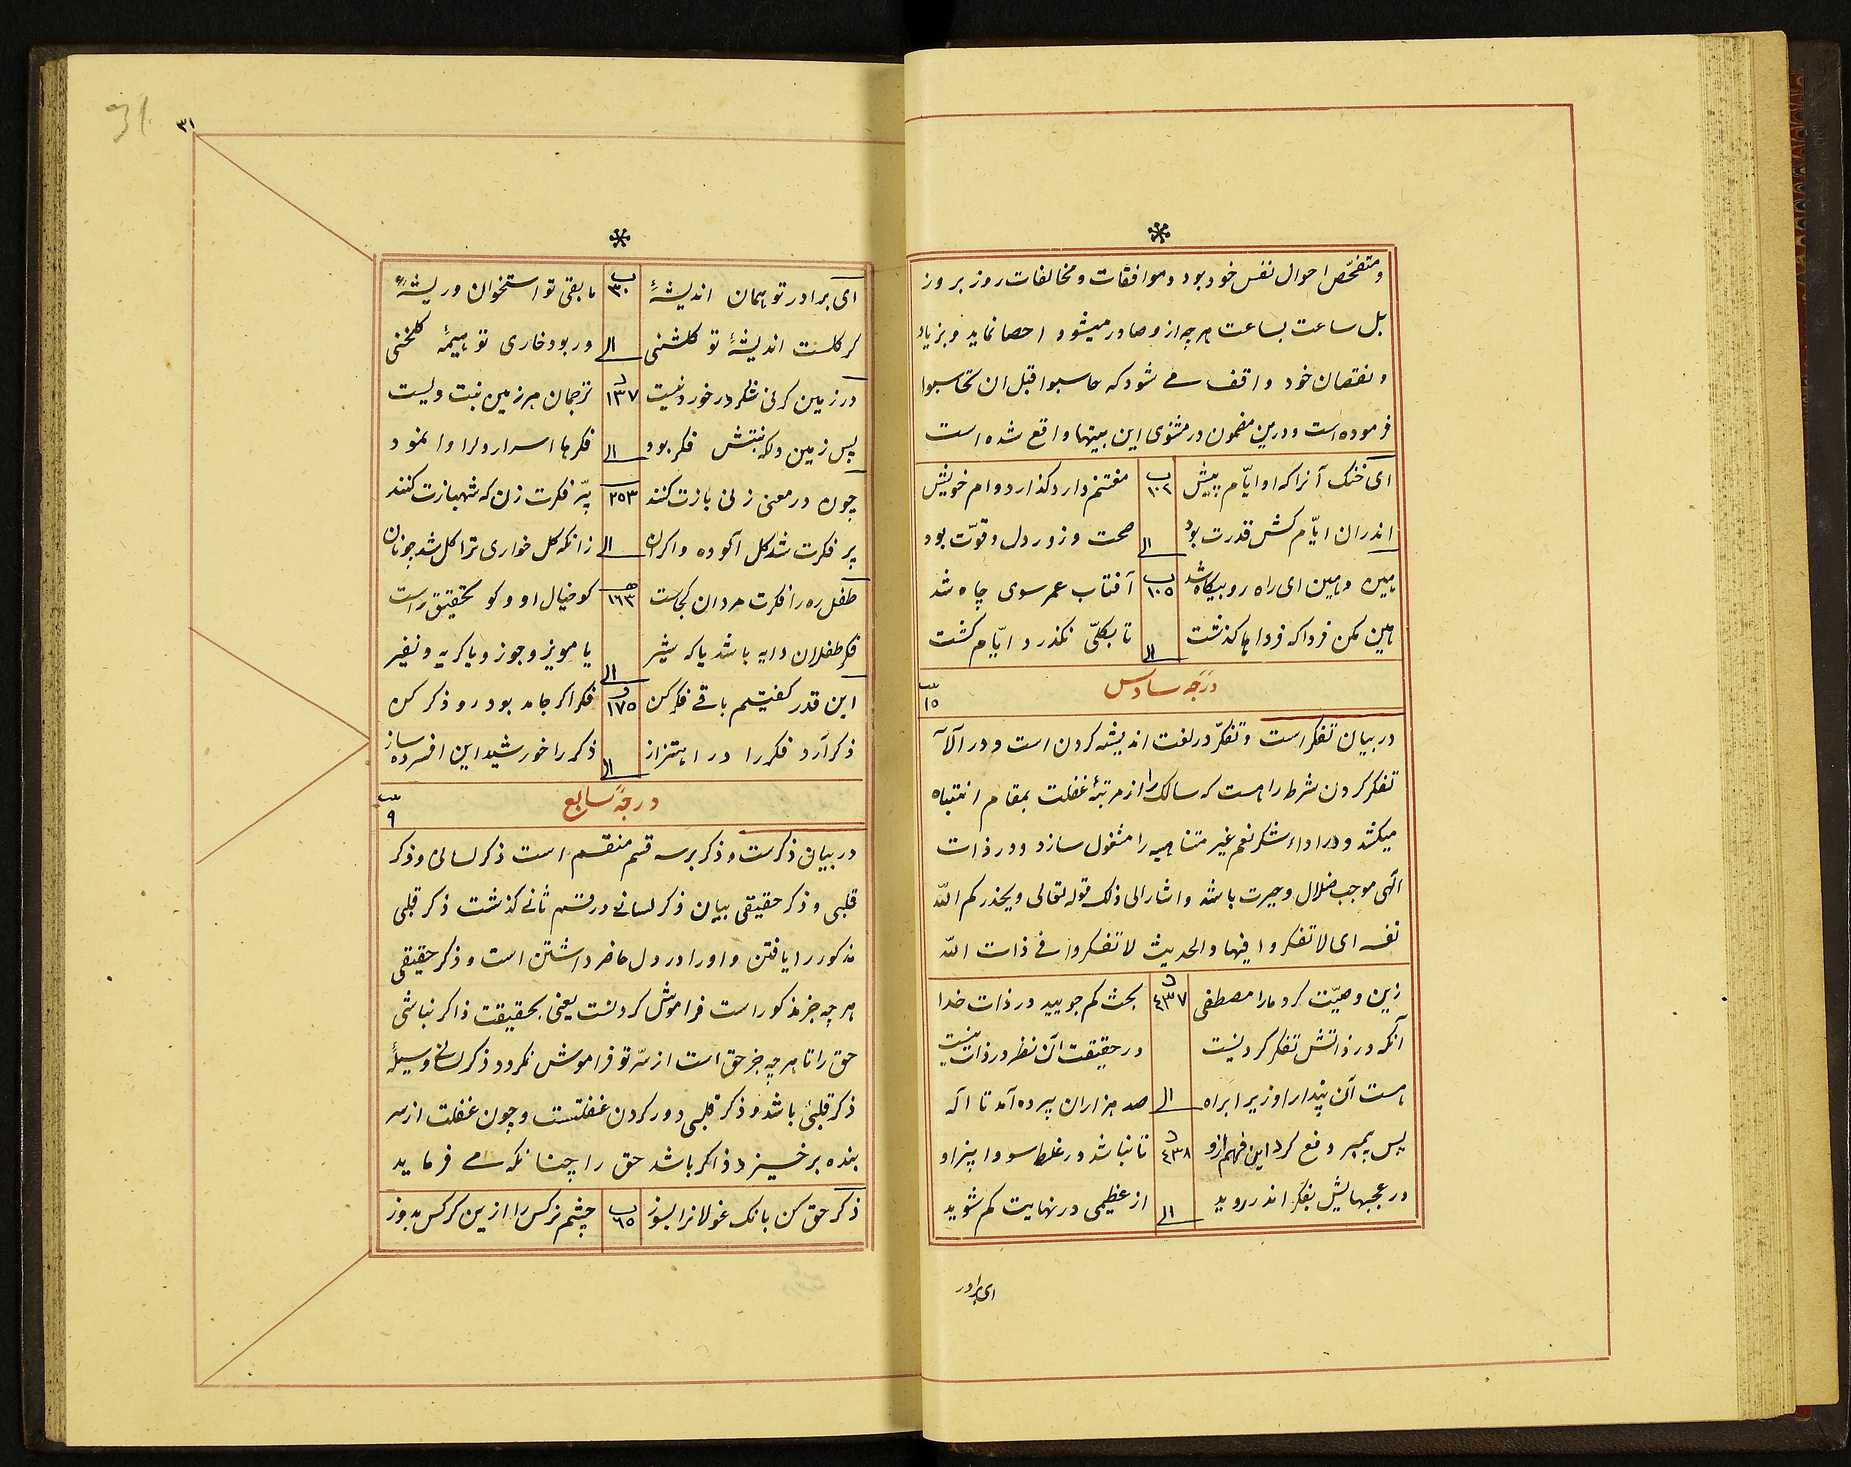 و متفحّص احوال نفس خود بود و موافقات و مخالفات روز بروز
بل ساعت بساعت هر چه ازو صادر میشود احصا نماید و بزیاد
و نقصان خود واقف می شود که حاسبوا قبل ان تحاسبوا
فرموده است و درین مضمون در مثنوی این بیتها واقع شده است
ای خنک آنرا که او ایّام پیش ب ١٠٢ مغتنم دارد گذارد وام خویش
اندران ایّام کش قدرت بود الی صحت و زور دل و قوّت بود
هین و هین ای راه رو بیگاه شد ب ١٠٥ آفتاب عمر سوی چاه شد
هین مکن فردا که فرداها گذشت الی تا بکلّی نگذرد ایّام کشت
درجهٔ سادس ١٥
در بیان تفکر است و تفکّر در لغت اندیشه کردن است و در آلآء
تفکر کردن شرط راهست که سالک را از مرتبهٔ غفلت بمقام انتباه
میکشد و در اداء شکر نعم غیر متناهیه را مشغول سازد و در ذات
الهی موجب ضلال و حیرت باشد و اشار الی ذلک قوله تعالی و یحذرکم اللّه
نفسه ای لا تفکروا فیها و الحدیث لا تفکروا فی ذات اللّه
زین وصیّت کرد ما را مصطفی د ٤٣٧ بحث کم جویید در ذات خدا
آنکه در ذاتش تفکر کردنیست در حقیقت آن نظر در ذات نیست
هست آن پندار او زیرا براه الی صد هزاران پرده آمد تا آله
پس پیمبر دفع کرد این فهم ازو د ٤٣٨ تا نباشد در غلط سودا پز او
در عجبهایش بفکر اندر روید الی از عظیمی در نهایت کم شوید
ای برادر
31
٣١
ای برادر تو همان اندیشهٔ ب ٣٠ ما بقی تو استخوان و ریشهٔ
گر گلست اندیشهٔ تو گلشنی الی ور بود خاری تو هیمهٔ گلخنی
در زمین گر نی شکر در خود نیست د ١٣٧ ترجمان هر زمین نبت ویست
پس زمین دل که نبتش فکر بود الی فکرها اسرار دل را وا نمود
چون در معنی زنی بازت کنند ٢٥٣ پّر فکرت زن که شهبازت کنند
پر فکرت شد گل آلوده و گران الی زانکه گل خواری ترا گل شد چو نان
طفل ره را فکرت مردان کجاست ه ١٦٣ کو خیال او و کو تحقیق راست
فکر طفلان دایه باشد یا که شیر الی یا مویز و جوز و یا گریه و نفیر
این قدر گفتیم باقی فکر کن و ١٧٥ فکر اگر جامد بود رو ذکر کن
ذکر آرد فکر را در اهتزاز الی ذکر را خورشید این افسرده ساز
درجهٔ سابع ٩
در بیان ذکرست و ذکر بر سه قسم منقسم است ذکر لسانی و ذکر
قلبی و ذکر حقیقی بیان ذکر لسانی در قسم ثانی گذشت ذکر قلبی
مذکور را یافتن و او را در دل حاضر داشتن است و ذکر حقیقی
هر چه جز مذکور است فراموش کردنست یعنی بحقیقت ذاکر نباشی
حق را تا هر چه جز حق است از سّر تو فراموش نگردد ذکر لسانی وسیلهٔ
ذکر قلبی باشد و ذکر قلبی دور کردن غفلتست و چون غفلت از سر
بنده برخیزد ذاکر باشد حق را چنانکه می فرماید
ذکر حق کن بانک غولانرا بسوز ب ٦٥ چشم نرگس را ازین کرکس بدوز